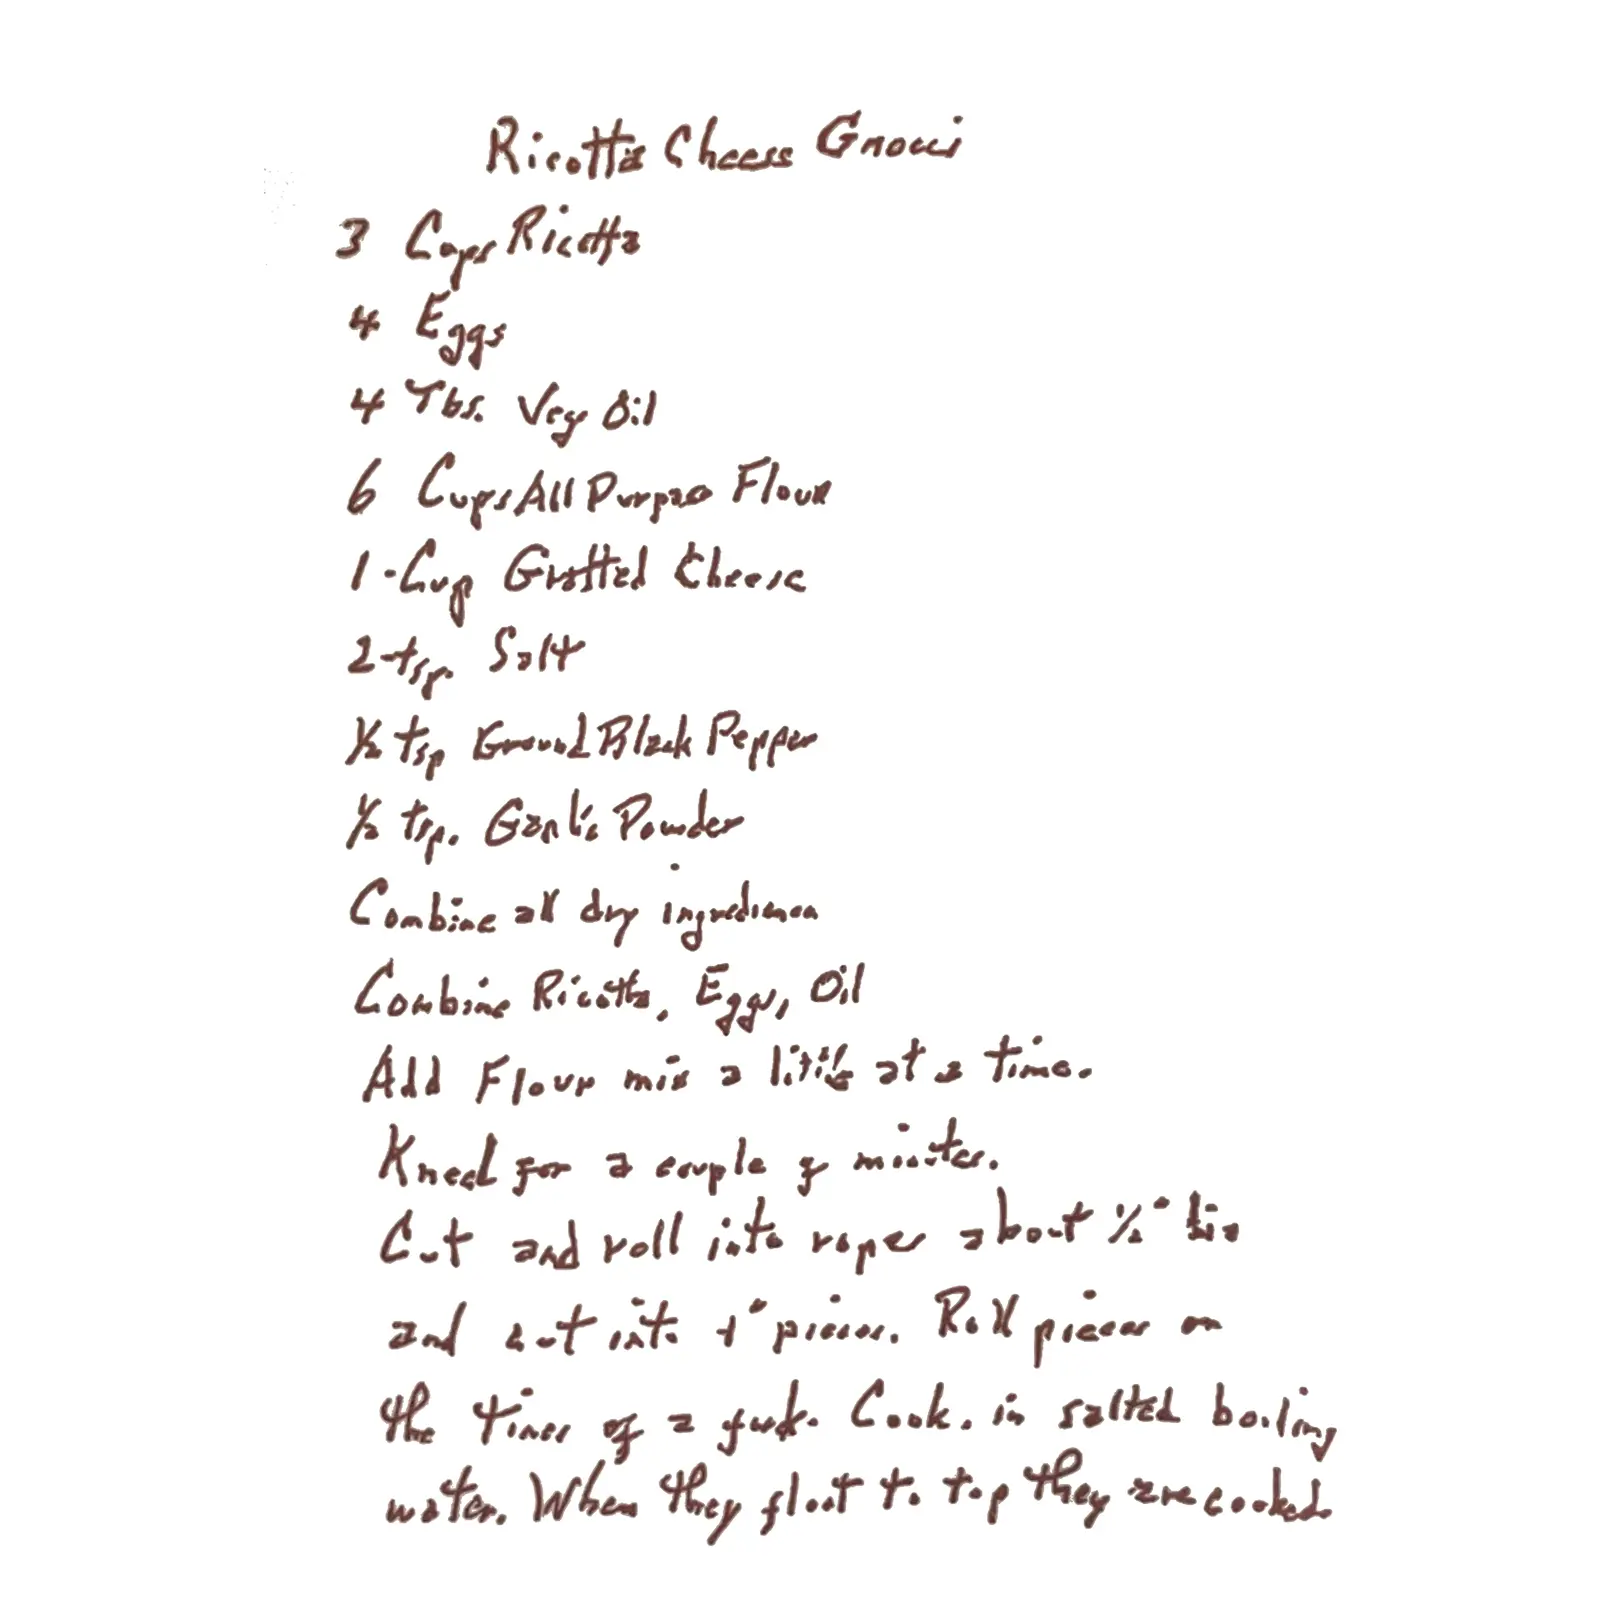 Ricotta Cheese Gnocci
3 Cups Ricotta
4 Eggs
4 Tbs. Veg Oil
6 Cups All Purpose Flour
1-Cup Gratted Cheese
2-tsp. Salt
1/2 tsp Ground Black Pepper
1/2 tsp. Garlic Powder
Combine all dry
Combine Ricotta, Eggs, Oil
Add Flour mix a little at a time.
Knead for a couple of minutes.
Cut and roll into ropes about 1/2"
and cut into 1" pieces. Roll pieces on
the tines of a fork. Cook. in salted boiling
water. When they float to top they are cooked.